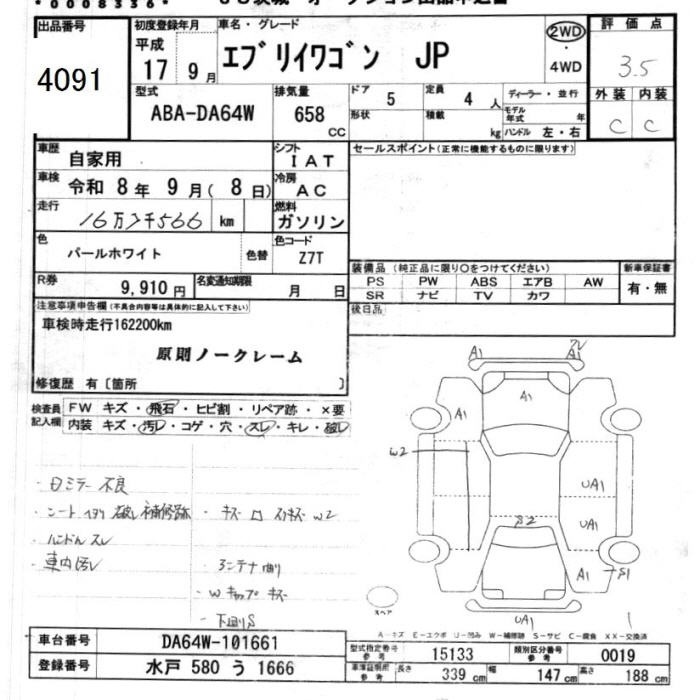 *0008336*
出品番号
4091
初度登録年月
平成
17 9月
車名・グレード
エブリイワゴン JP
2WD
4WD
評価点
3.5
型式
ABA-DA64W
排気量
658
CC
ドア 5
形状
定員 4 人
積載
kg
ディーラー・並行
モデル年式 年
ハンドル 左・右
外装 内装
C C
車歴
自家用
シフト
IAT
セールスポイント(正常に機能するものに限ります)
車検
令和 8年 9月(8日)
冷房
AC
走行
km
燃料
ガソリン
色
パールホワイト
色替
色コード
Z7T
装備品 (純正品に限り○をつけてください)
PS PW ABS エアB AW
SR ナビ TV カワ
新車保証書
有・無
R券
9,910 円
名変通知期限
月 日
後日品
注意事項申告欄(不具合内容等は具体的に記入して下さい)
車検時走行162200km
原則ノークレーム
修復歴 有〔箇所 〕
検査員記入欄
FW キズ・飛石・ヒビ割・リペア跡・×要
内装 キズ・汚レ・コゲ・穴・スレ・キレ・破レ
・ハンドル スレ
・車内汚レ
・Wキャップ キズ
・下回りS
A1 A1
A1 A1
W2
UA1
UA1
S2
A1 S1
UA1
スペア
A-キズ E-エクボ U-凹み W-補修跡 S-サビ C-腐食 XX-交換済
車台番号
DA64W-101661
登録番号
水戸 580 う 1666
型式指定番号
参考
15133
類別区分番号
参考
0019
車庫証明所
参考
長さ 339 cm 幅 147 cm 高さ 188 cm